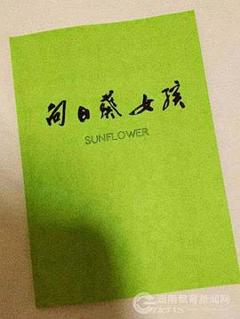 向日葵女孩
SUNFLOWER
湖南教育新闻网